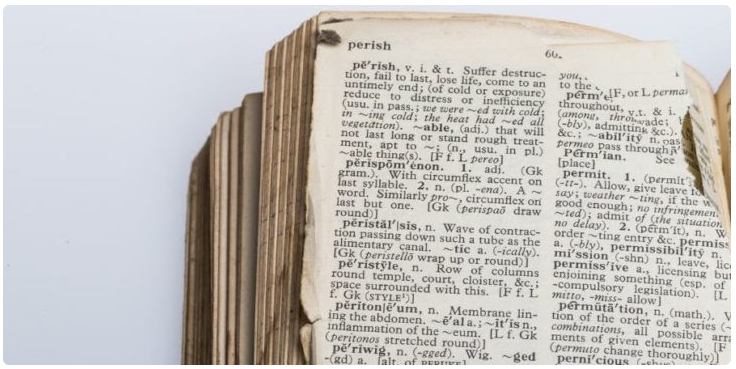 perish
60.
pĕ'rish, v. i. & t. Suffer destruc-
tion, fail to last, lose life, come to an
untimely end; (of cold or exposure)
reduce to distress or inefficiency
(usu. in pass.; we were ~ed with cold;
in ~ing cold; the heat had ~ed all
vegetation). ~able, (adj.) that will
not last long or stand rough treat-
ment, apt to ~; (n., usu. in pl.)
~able thing(s). [F f. L pereo]
pĕrispōm'ĕnon. 1. adj. (Gk
gram.). With circumflex accent on
last syllable. 2. n. (pl. -ena). A ~
word. Similarly pro~, circumflex on
last but one. [Gk (perispaō draw
round)]
pĕristăl'|sis, n. Wave of contrac-
tion passing down such a tube as the
alimentary canal. ~tic a. (-ically).
[Gk (peristellō wrap up or round)]
pĕ'ristȳle, n. Row of columns
round temple, court, cloister, &c.;
space surrounded with this. [F f. L
f. Gk (STYLE¹)]
pĕriton|ē'um, n. Membrane lin-
ing the abdomen. ~ē'al a.; ~it'is n.,
inflammation of the ~eum. [L f. Gk
(peritonos stretched round)]
pĕ'riwig, n. (-gged). Wig. ~ged
(-gd) a. [alt. of PERUKE]
you,
to the
[F, or L
throughout, v.t. & i.
(among,
(-bly), admitting &c.).
&c.; ~abil'itȳ n.
permeo pass through
Pĕrm'ian. See
[place]
permit. 1. (permit'
(-tt-). Allow, give leave
say; weather ~ting, if the
good enough; no infringement
~ted); admit of (the situation
no delay). 2. (pĕrm'ĭt), n.
order ~ting entry &c.
a. (-bly), permissibil'itȳ n.
mi'ssion (-shn) n., leave,
permiss'ive a., licensing
enjoining something (esp. of
-compulsory legislation). [L
mitto, -miss- allow]
pĕrmūtā'tion, n. (math.).
tion of the order of a series
combinations, all possible
ments of given elements). [F
(permuto change thoroughly)]
perni'cious